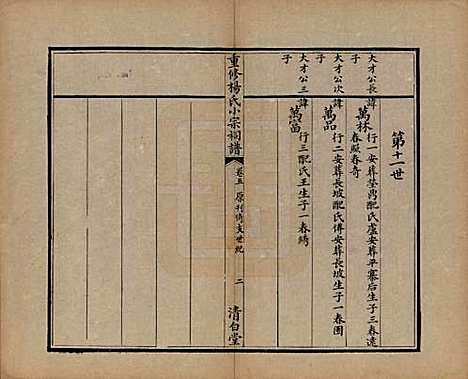 第十一世
大才公長子
諱萬林 行一安葬塋禺配氏盧安葬平寨后生子三春遠
春殿春奇
大才公次子
諱萬品 行二安葬長坡配氏傅安葬長坡生子一春圃
大才公三子
諱萬富 行三配氏王生子一春綉
重修楊氏小宗祠譜
卷五 原村傅支世紀
二
清白堂